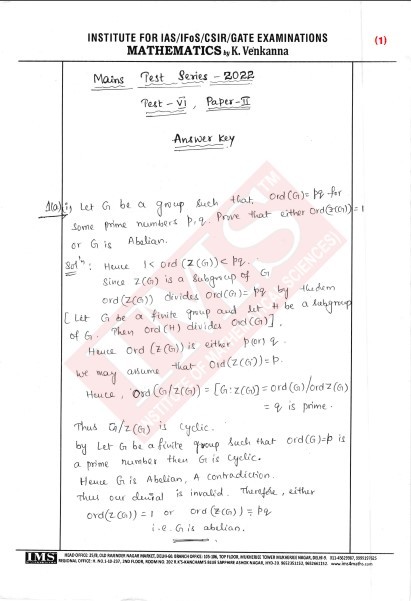 INSTITUTE FOR IAS/IFoS/CSIR/GATE EXAMINATIONS
MATHEMATICS by K. Venkanna
(1)
Mains Test Series - 2022
Test - VI, Paper - II
Answer Key
1(a) i) Let G be a group such that ord(G) = pq for
some prime numbers p, q. Prove that either ord(Z(G)) = 1
or G is Abelian.
Sol'n: Hence 1 < ord (Z(G)) < pq.
Since Z(G) is a subgroup of G
ord(Z(G)) divides ord(G) = pq by thdem
[Let G be a finite group and let H be a subgroup
of G. Then ord(H) divides ord(G)],
Hence ord (Z(G)) is either p (or) q.
we may assume that ord(Z(G)) = p.
Hence, ord(G/Z(G)) = [G:Z(G)] = ord(G)/ord Z(G)
= q is prime.
Thus G/Z(G) is cyclic.
by Let G be a finite group such that ord(G) = p is
a prime number then G is cyclic.
Hence G is Abelian, A contradiction.
Thus our denial is invalid. Therefore, either
ord(Z(G)) = 1 or ord(Z(G)) = pq
i.e. G is abelian.
IMS
HEAD OFFICE: 25/8, OLD RAJENDER NAGAR MARKET, DELHI-60. BRANCH OFFICE: 105-106, TOP FLOOR, MUKHERJEE TOWER MUKHERJEE NAGAR, DELHI-9.
REGIONAL OFFICE: H. NO. 1-10-237, 2ND FLOOR, ROOM NO. 202 R.K'S-KANCHAM'S BLUE SAPPHIRE ASHOK NAGAR, HYD-20. 9652351152, 9652661152. www.ims4maths.com